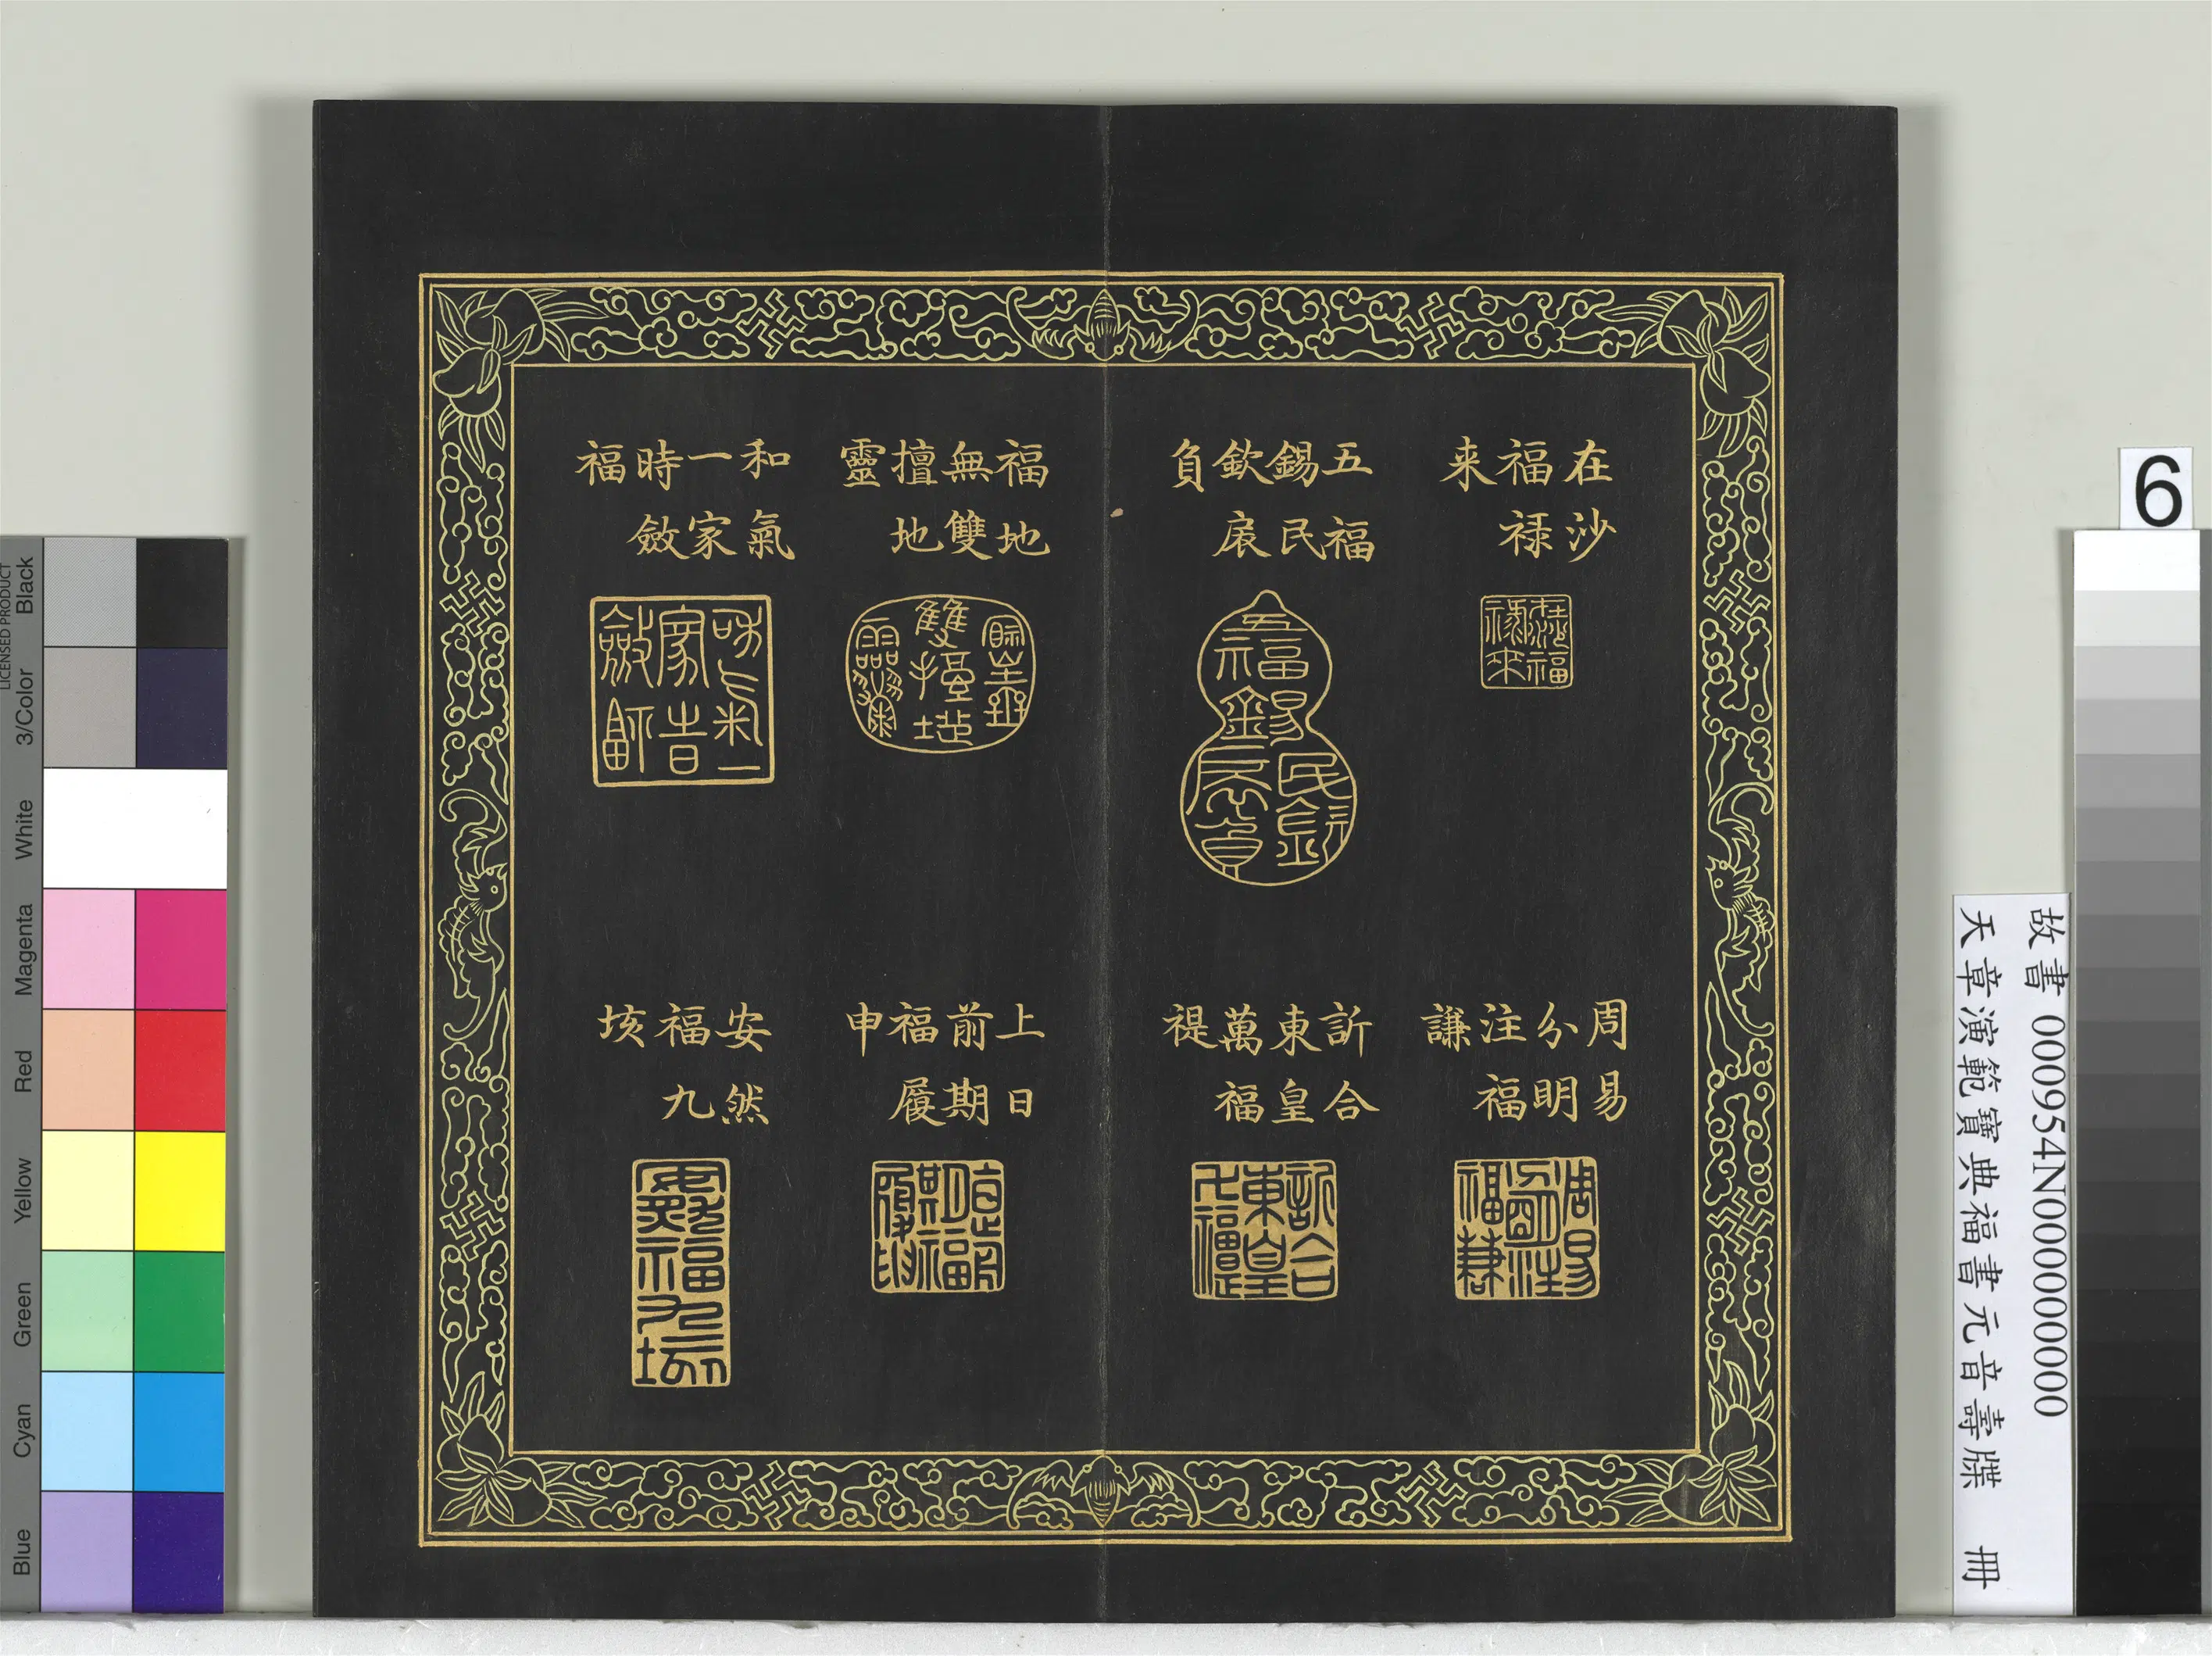 在沙
福禄
来
五福
錫民
欽扆
負
福地
無雙
擅地
靈
和氣
一家
時斂
福
周易
分明
注福
謙
訢合
東皇
萬福
禔
上日
前期
福履
申
安然
福九
垓
6
故書 000954N000000000
天章演範寶典福書元音壽牒 冊
LICENSED PRODUCT
Black
3/Color
White
Magenta
Red
Yellow
Green
Cyan
Blue